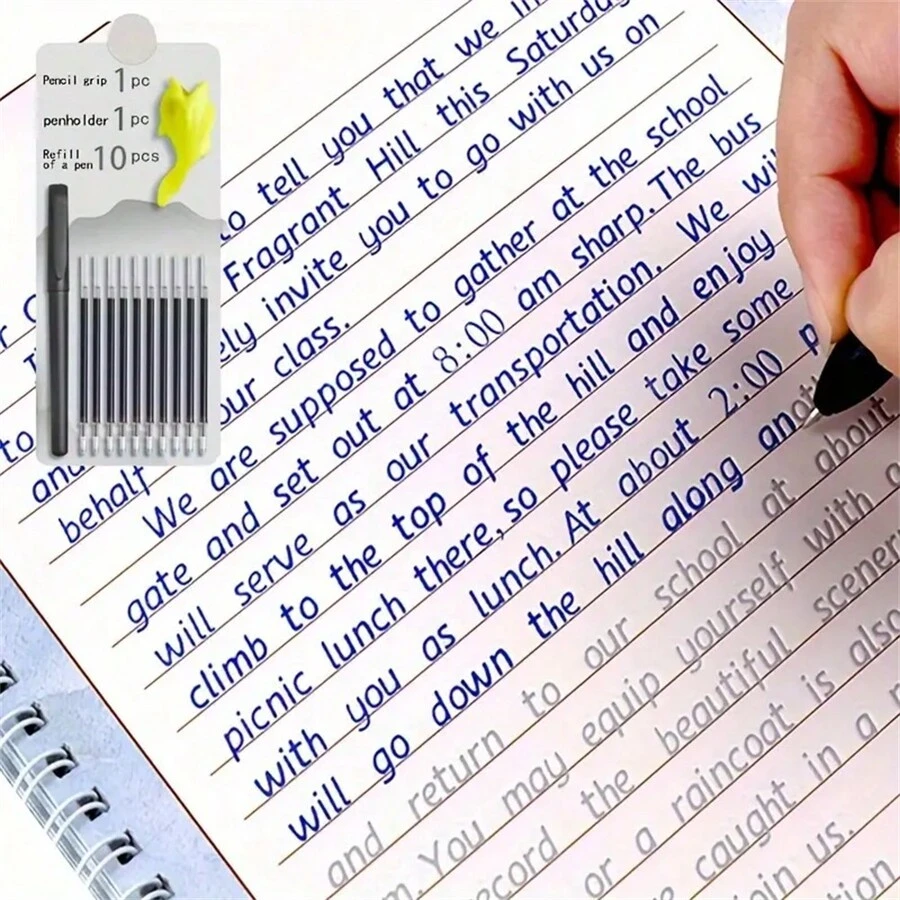 Pencil grip 1 pc
penholder 1 pc
Refill of a pen 10 pcs
to tell you that we in
Fragrant Hill this Saturday
ely invite you to go with us on
and our class.
behalf
We are supposed to gather at the school
gate and set out at 8:00 am sharp. The bus
will serve as our transportation. We wi
climb to the top of the hill and enjoy
picnic lunch there, so please take some
with you as lunch. At about 2:00 p
will go down the hill along anot
and return to our school at about
m. You may equip yourself with a
ecord the beautiful scener
or a raincoat is also
e caught in a r
join us.
tion